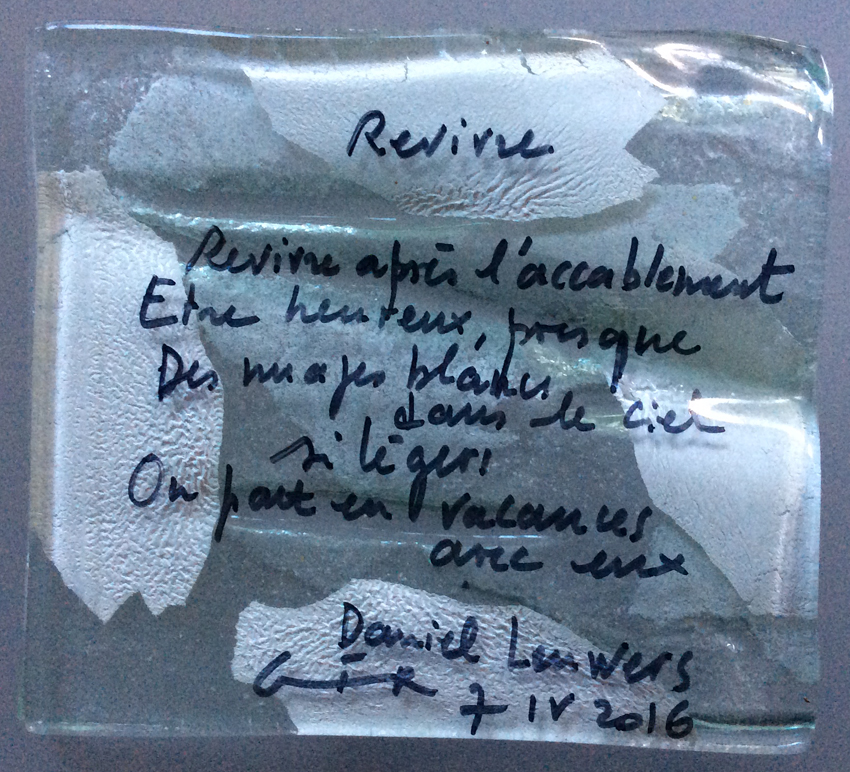 Revivre
Revivre après l'accablement
Etre heureux, presque
Des nuages blancs
dans le ciel
si légers
On part en vacances
avec eux
Daniel Leuwers
7 IV 2016